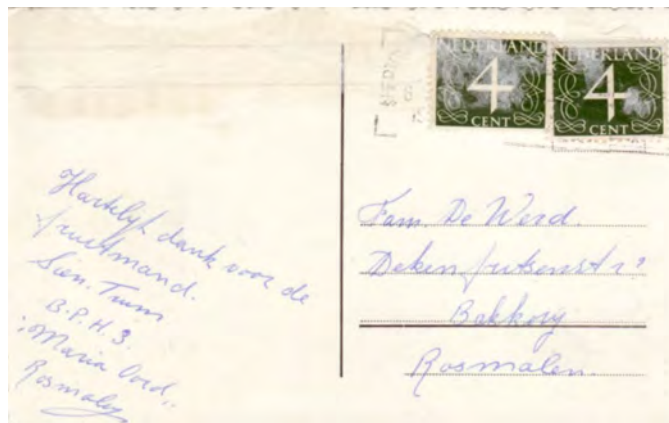 NEDERLAND
4
CENT
NEDERLAND
4
CENT
Hartelijk dank voor de
fruitmand.
Sien. Trum
B.P.H.3.
"Maria Oord"
Rosmalen
Fam. De Werd.
Deken
Bakkerij
Rosmalen.